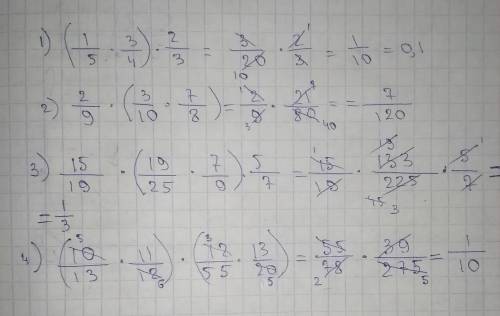 1) (1/5 · 3/4) · 2/3 = 3/20 · 2/3 = 1/10 = 0,1
2) 2/9 · (3/10 · 7/8) = 2/9 · 21/80 = = 7/120
3) 15/19 · (19/25 · 7/9) · 5/7 = 15/19 · 133/225 · 5/7 =
= 1/3
4) (10/13 · 11/18) · (18/55 · 13/20) = 55/78 · 39/275 = 1/10